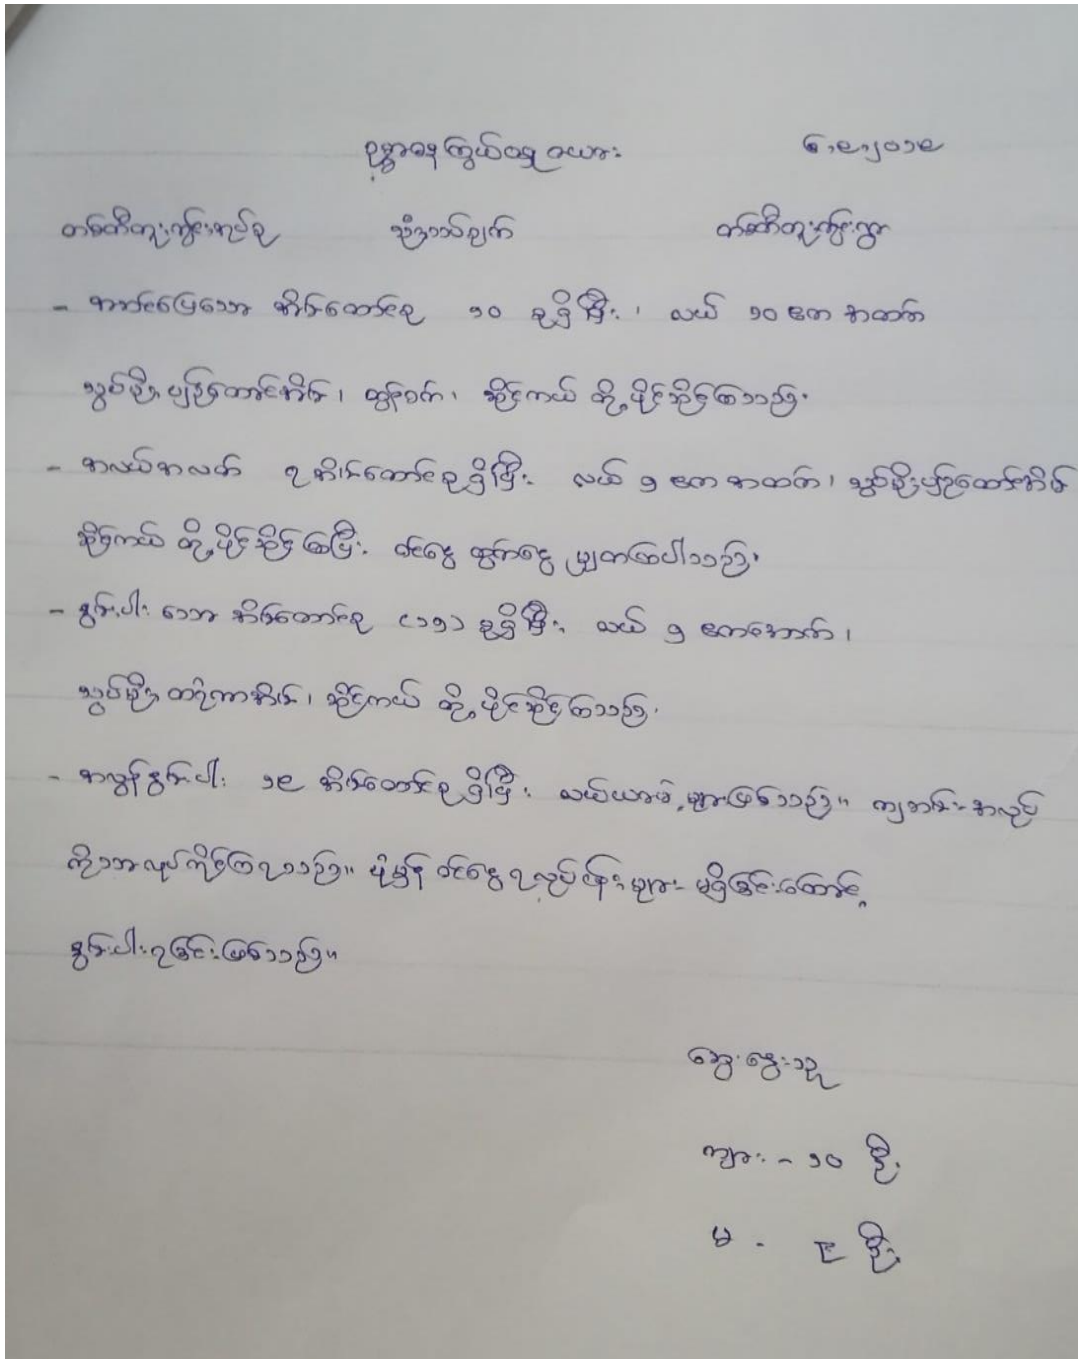 ဥစ္စာဓနကြွယ်ဝမှု ဇယား ၆.၉.၂၀၁၉
တစ်တီတူးကွင်းအုပ်စု သုံးသပ်ချက် တစ်တီတူးကွင်းရွာ
- အဆင်ပြေသော အိမ်ထောင်စု ၁၀ စုရှိပြီး၊ လယ် ၁၀ ဧက အထက်
သွပ်မိုး ပျဉ်ထောင်အိမ်၊ ထွန်စက်၊ ဆိုင်ကယ် တို့ပိုင်ဆိုင်ကြသည်။
- အလယ်အလတ် ၇ အိမ်ထောင်စုရှိပြီး လယ် ၅ ဧက အထက်၊ သွပ်မိုးပျဉ်ထောင်အိမ်
ဆိုင်ကယ် တို့ပိုင်ဆိုင်ကြပြီး ဝင်ငွေ ထွက်ငွေ မျှတကြပါသည်။
- နွမ်းပါးသော အိမ်ထောင်စု (၁၅) စုရှိပြီး လယ် ၅ ဧကအောက်၊
သွပ်မိုး အိမ်၊ ဆိုင်ကယ် တို့ပိုင်ဆိုင်ကြသည်။
- အလွန်နွမ်းပါး ၁၉ အိမ်ထောင်စုရှိပြီး လယ်ယာမဲ့များဖြစ်သည်။ ကျဘမ်းအလုပ်
ကိုသာလုပ်ကိုင်ကြရသည်။ ပုံမှန် ဝင်ငွေရလုပ်ငန်းများ မရှိခြင်းကြောင့်
နွမ်းပါးရခြင်းဖြစ်သည်။
ဆွေးနွေးသူ
ကျား - ၁၀ ဦး
မ - ၉ ဦး